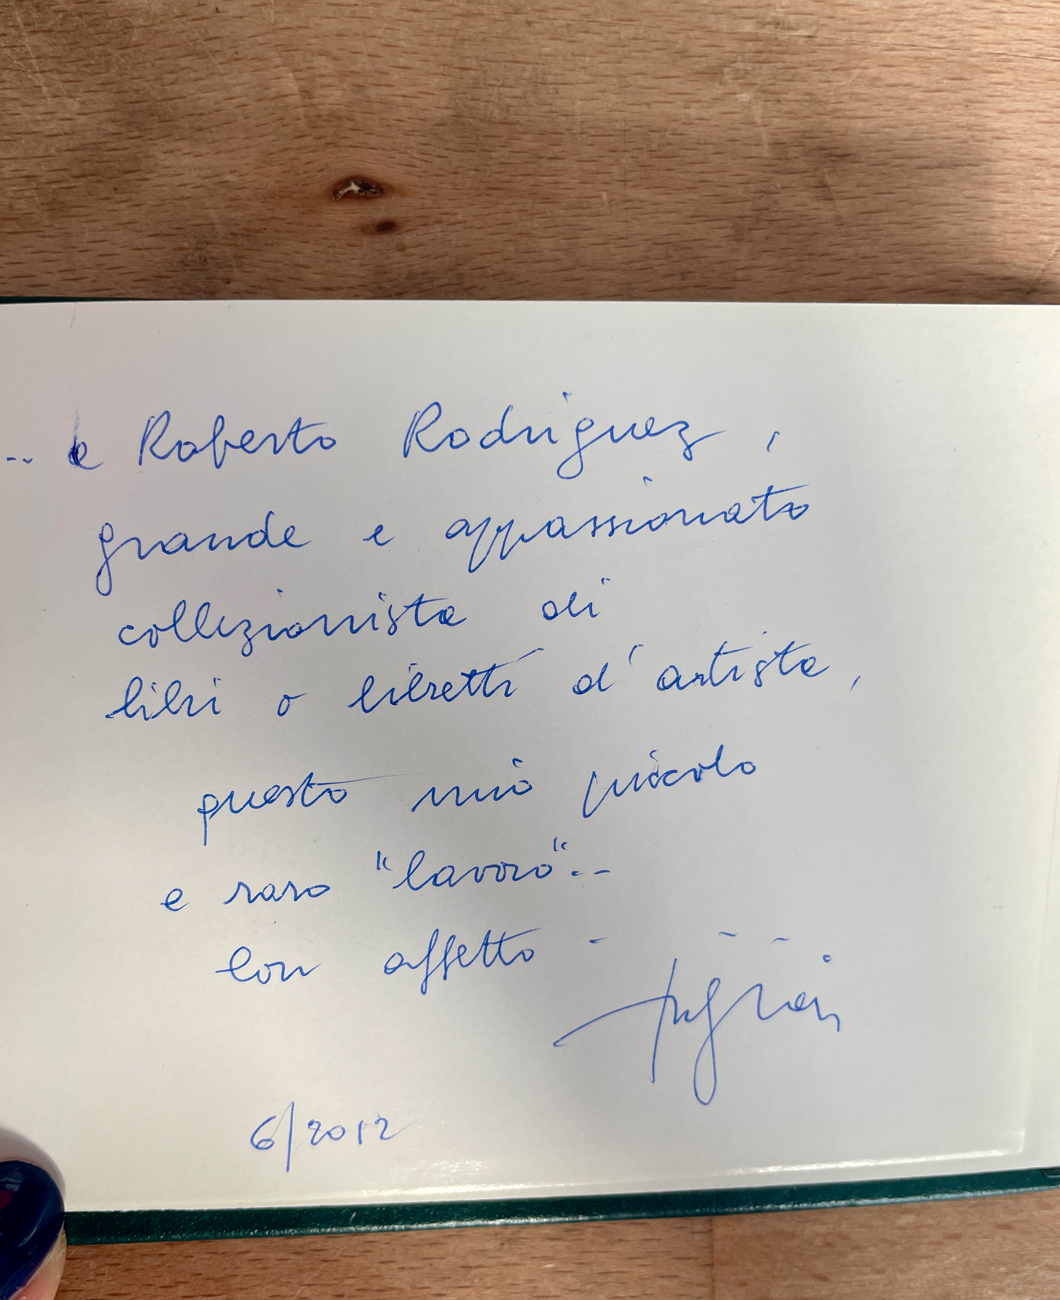 .. a Roberto Rodriguez,
grande e appassionato
collezionista di
libri o libretti d'artista,
questo mio piccolo
e raro "lavoro"..
con affetto -
6/2012